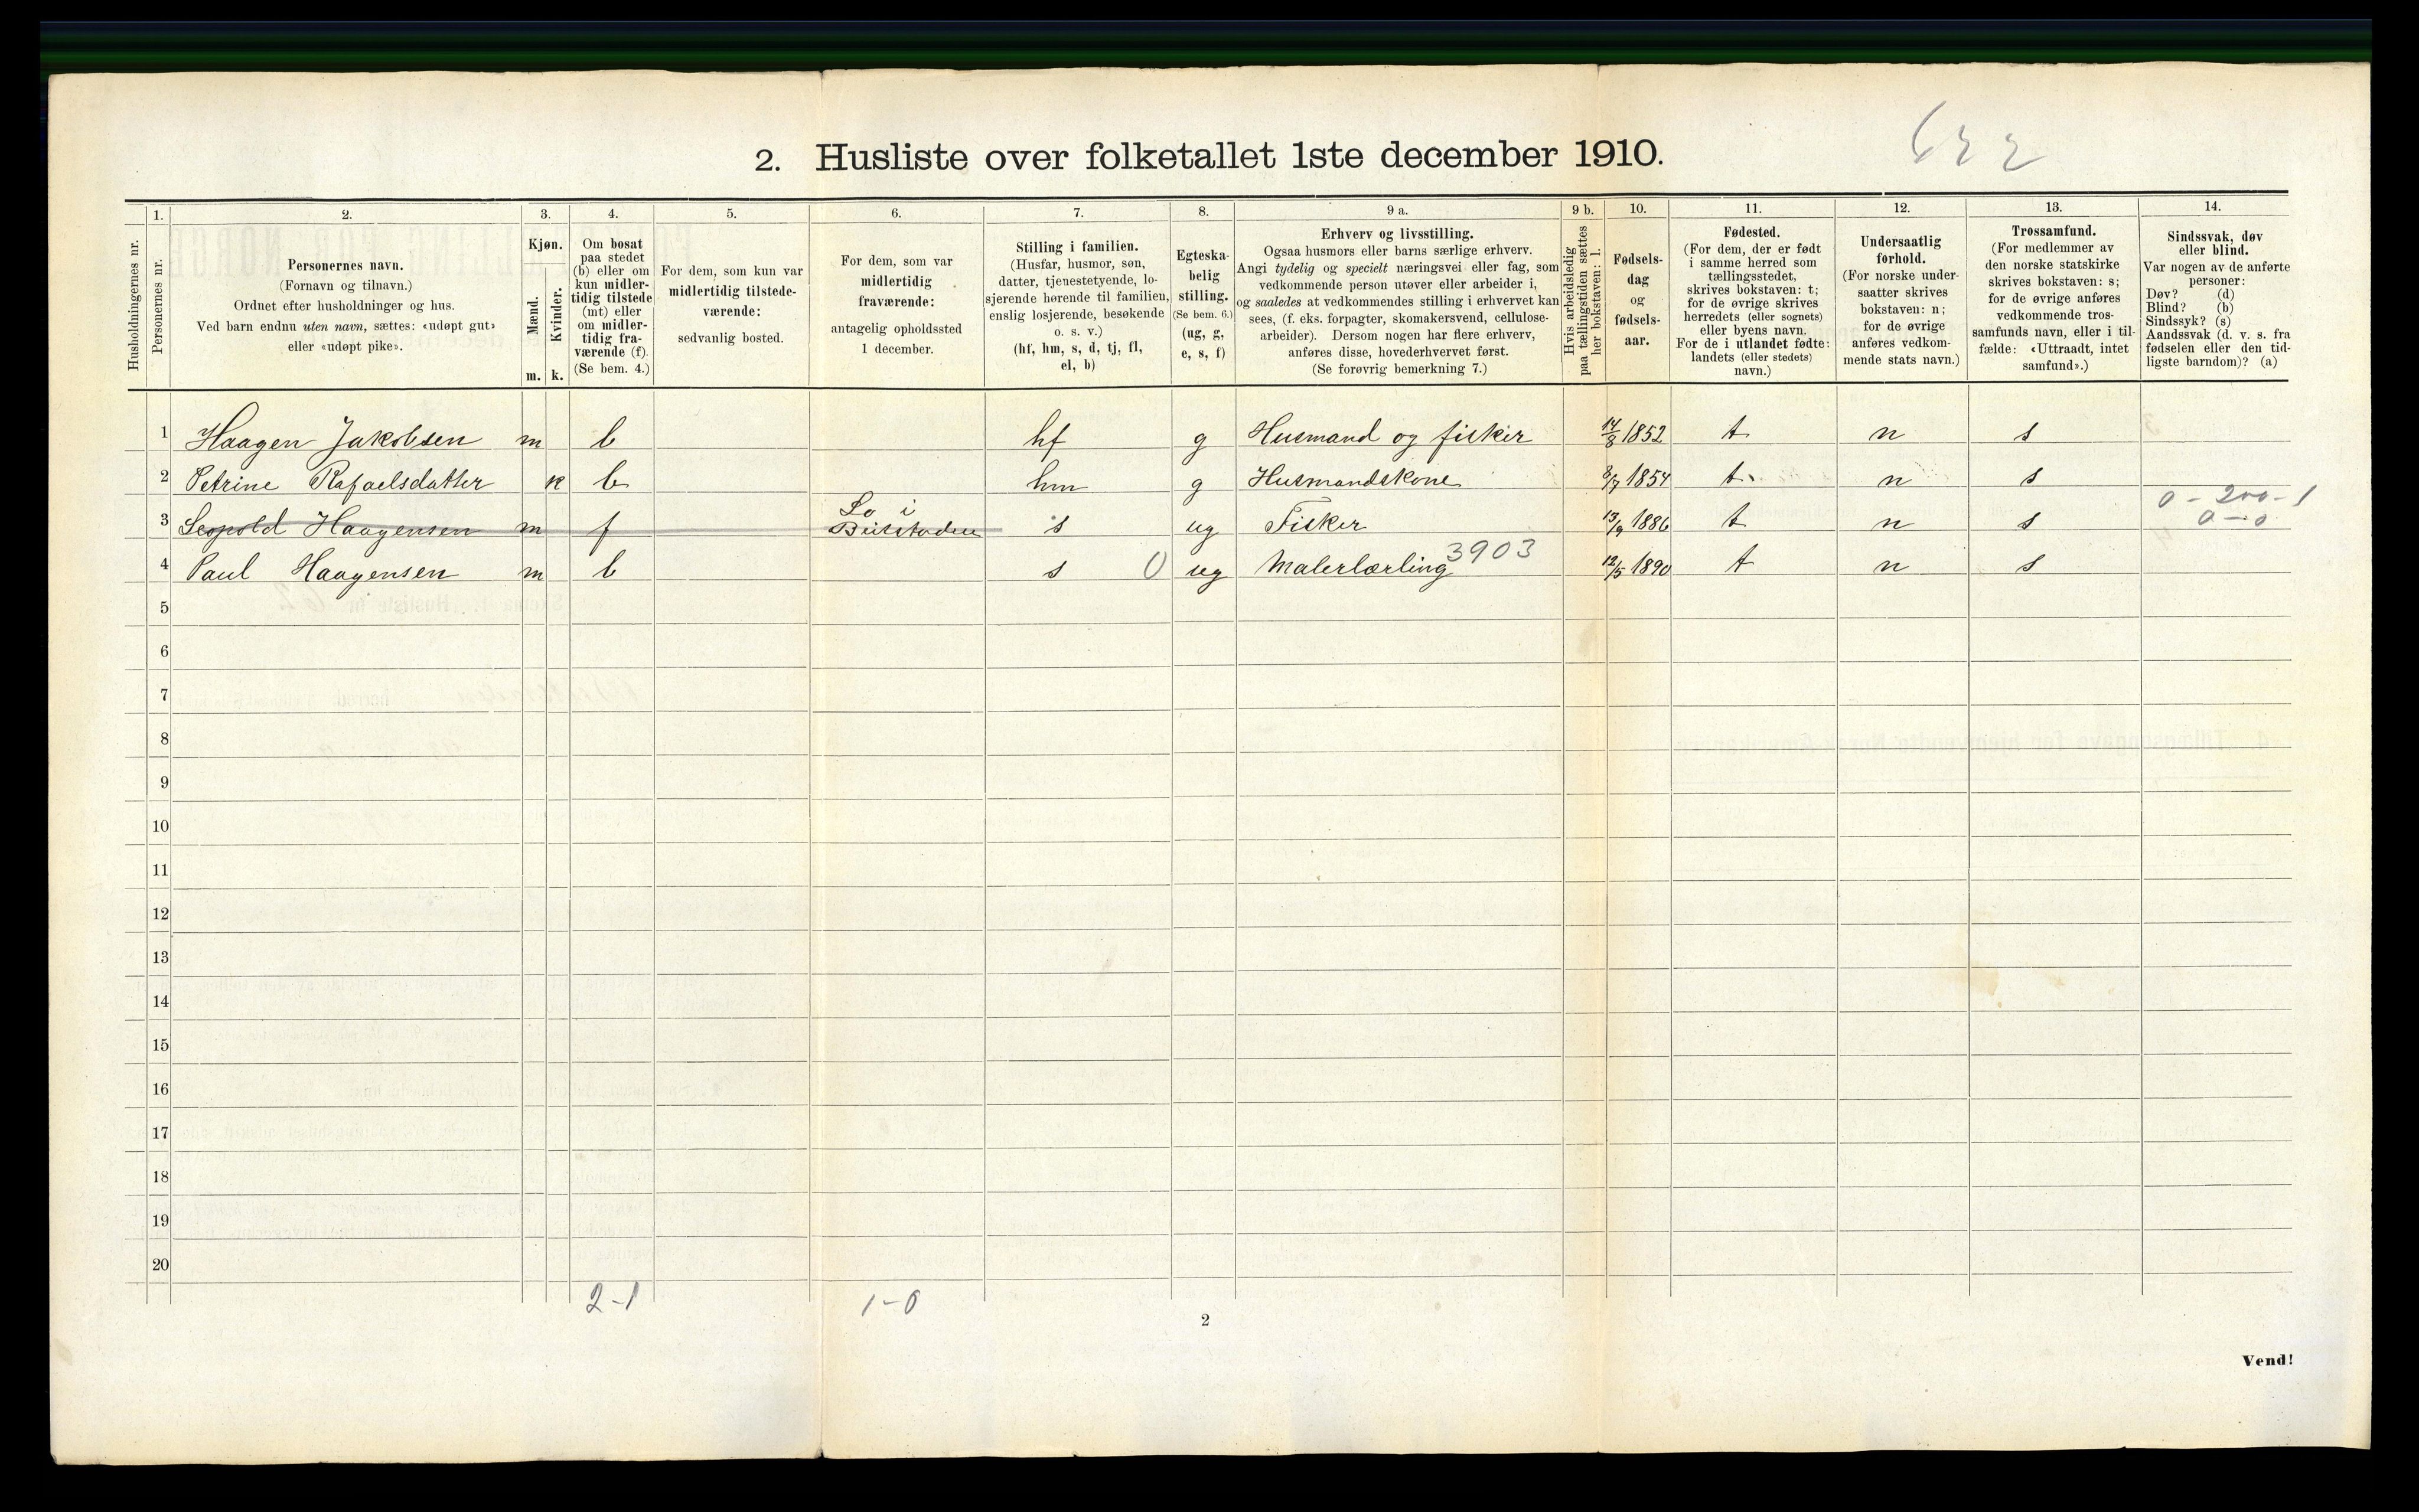 2. Husliste over folketallet 1ste december 1910.
622
Husholdningernes nr.
1.
Personernes nr.
2.
Personernes navn.
(Fornavn og tilnavn.)
Ordnet efter husholdninger og hus.
Ved barn endnu uten navn, sættes: «udøpt gut»
eller «udøpt pike».
3.
Kjøn.
Mænd.
Kvinder.
m. k.
4.
Om bosat
paa stedet
(b) eller om
kun midler-
tidig tilstede
(mt) eller
om midler-
tidig fra-
værende (f).
(Se bem. 4.)
5.
For dem, som kun var
midlertidig tilstede-
værende:
sedvanlig bosted.
6.
For dem, som var
midlertidig
fraværende:
antagelig opholdssted
1 december.
7.
Stilling i familien.
(Husfar, husmor, søn,
datter, tjenestetyende, lo-
sjerende hørende til familien,
enslig losjerende, besøkende
o. s. v.)
(hf, hm, s, d, tj, fl,
el, b)
8.
Egteska-
belig
stilling.
(Se bem. 6.)
(ug, g,
e, s, f)
9 a.
Erhverv og livsstilling.
Ogsaa husmors eller barns særlige erhverv.
Angi tydelig og specielt næringsvei eller fag, som
vedkommende person utøver eller arbeider i,
og saaledes at vedkommendes stilling i erhvervet kan
sees, (f. eks. forpagter, skomakersvend, cellulose-
arbeider). Dersom nogen har flere erhverv,
anføres disse, hovederhvervet først.
(Se forøvrig bemerkning 7.)
9 b.
Hvis arbeidsledig
paa tællingstiden sættes
her bokstaven: l.
10.
Fødsels-
dag
og
fødsels-
aar.
11.
Fødested.
(For dem, der er født
i samme herred som
tællingsstedet,
skrives bokstaven: t;
for de øvrige skrives
herredets (eller sognets)
eller byens navn.
For de i utlandet fødte:
landets (eller stedets)
navn.)
12.
Undersaatlig
forhold.
(For norske under-
saatter skrives
bokstaven: n;
for de øvrige
anføres vedkom-
mende stats navn.)
13.
Trossamfund.
(For medlemmer av
den norske statskirke
skrives bokstaven: s;
for de øvrige anføres
vedkommende tros-
samfunds navn, eller i til-
fælde: «Uttraadt, intet
samfund».)
14.
Sindssvak, døv
eller blind.
Var nogen av de anførte
personer:
Døv? (d)
Blind? (b)
Sindssyk? (s)
Aandssvak (d. v. s. fra
fødselen eller den tid-
ligste barndom)? (a)
1 Haagen Jakobsen m b hf g Husmand og fisker 14/8 1852 t n s
2 Petrine Rafaelsdatter k b hm g Husmandskone 8/7 1854 t. n s
Lo i
0 - 200 - 1
3 Leopold Haagensen m f Beitstaden s ug Fisker 13/9 1886 t n s 0 - 0
4 Paul Haagensen m b s 0 ug Malerlærling 3903 12/5 1890 t n s
5
6
7
8
9
10
11
12
13
14
15
16
17
18
19
20
2-1 1-0
2
Vend!